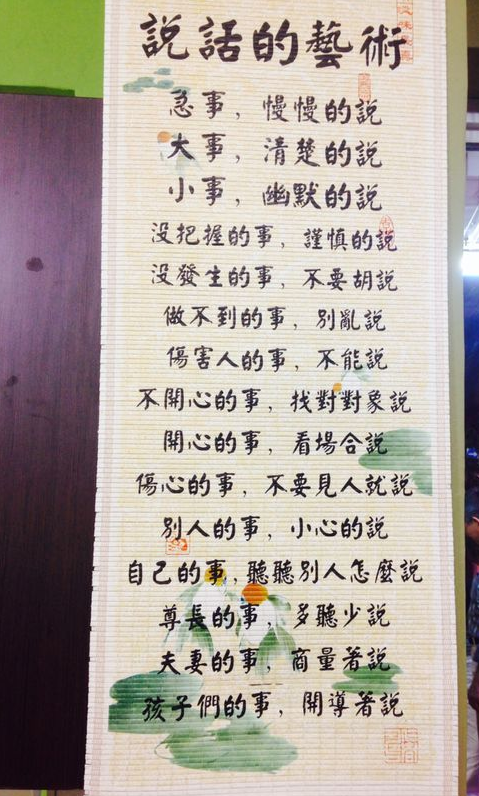 說話的藝術
急事，慢慢的說
大事，清楚的說
小事，幽默的說
没把握的事，謹慎的說
没發生的事，不要胡說
做不到的事，別亂說
傷害人的事，不能說
不開心的事，找對對象說
開心的事，看場合說
傷心的事，不要見人就說
別人的事，小心的說
自己的事，聽聽別人怎麼說
尊長的事，多聽少說
夫妻的事，商量著說
孩子們的事，開導著說